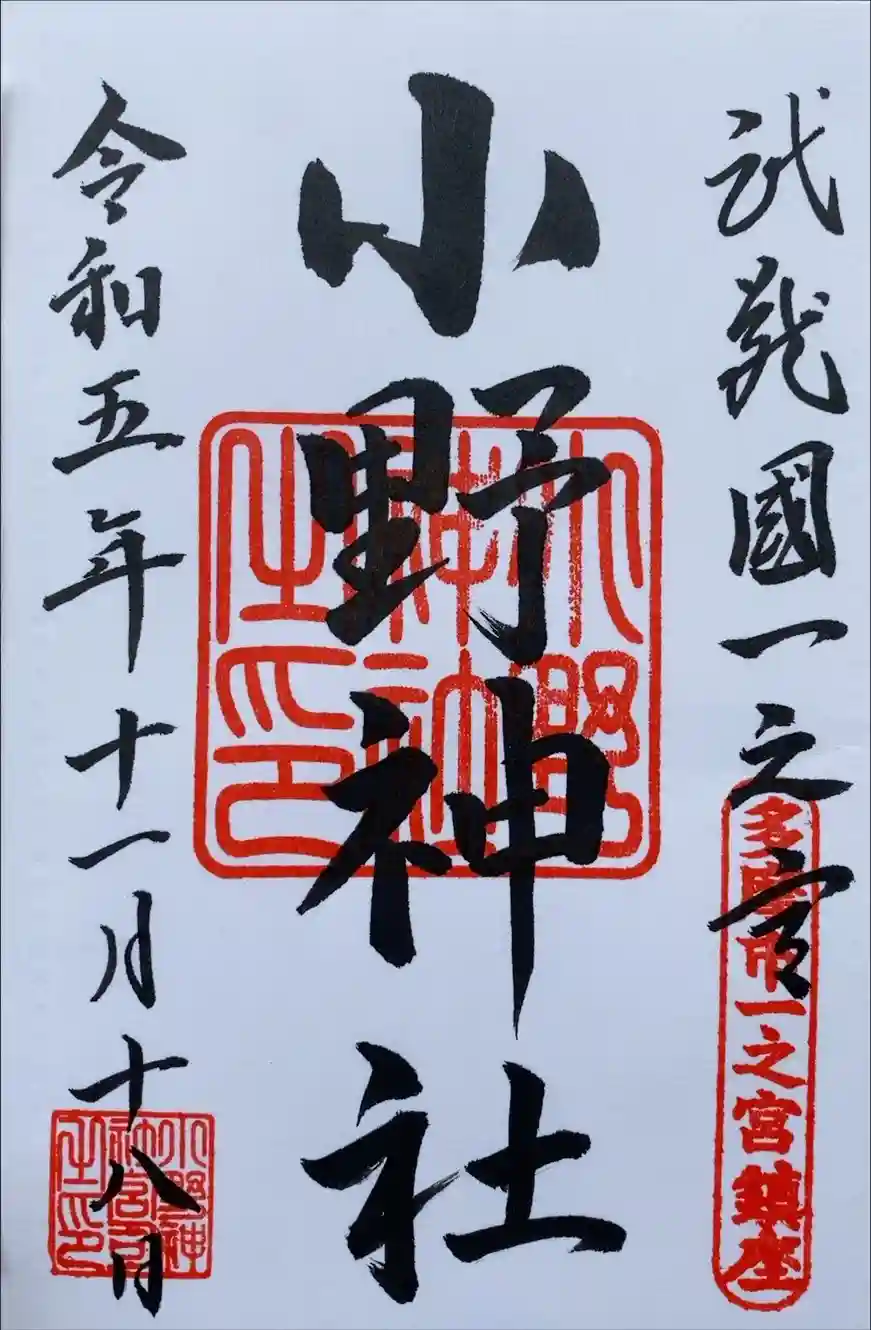 武蔵國一之宮
多摩市一之宮鎮座
小野神社
小野神社之印
令和五年十一月十八日
小野神神宮司之印